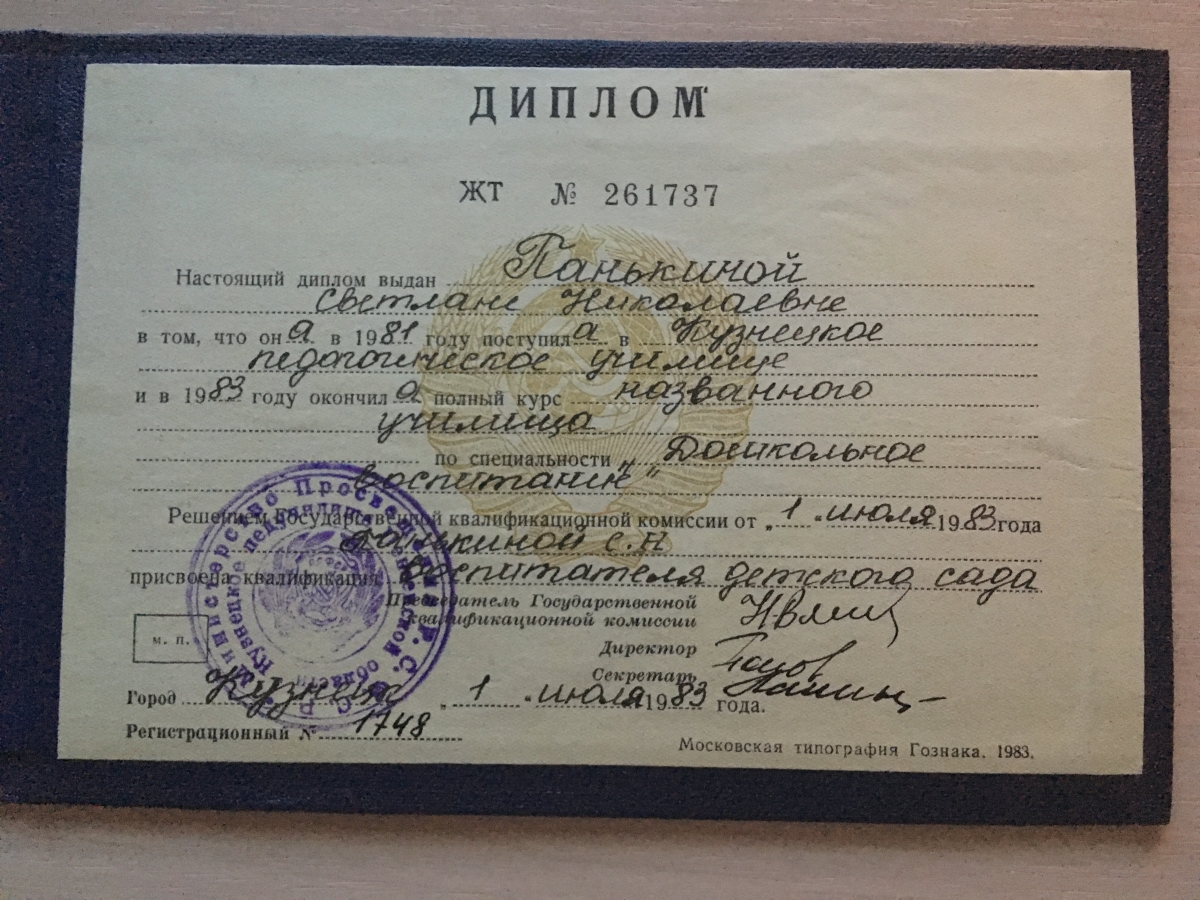 ДИПЛОМ
ЖТ № 261737
Настоящий диплом выдан Панькиной
Светлане Николаевне
в том, что он а в 1981 году поступил а в Кузнецкое
педагогическое училище
и в 1983 году окончил а полный курс названного
училища
по специальности „Дошкольное
воспитание“
Решением Государственной квалификационной комиссии от „1“ июля 1983 года
Панькиной С.Н
присвоена квалификация воспитателя детского сада
Председатель Государственной
квалификационной комиссии
Директор
м. п.
Секретарь
Город Кузнецк „1“ июля 1983 года.
Регистрационный № 1748
Московская типография Гознака. 1983.
Министерство Просвещения Р.С.Ф.С.Р.
Кузнецкое педучилище Пензенской области